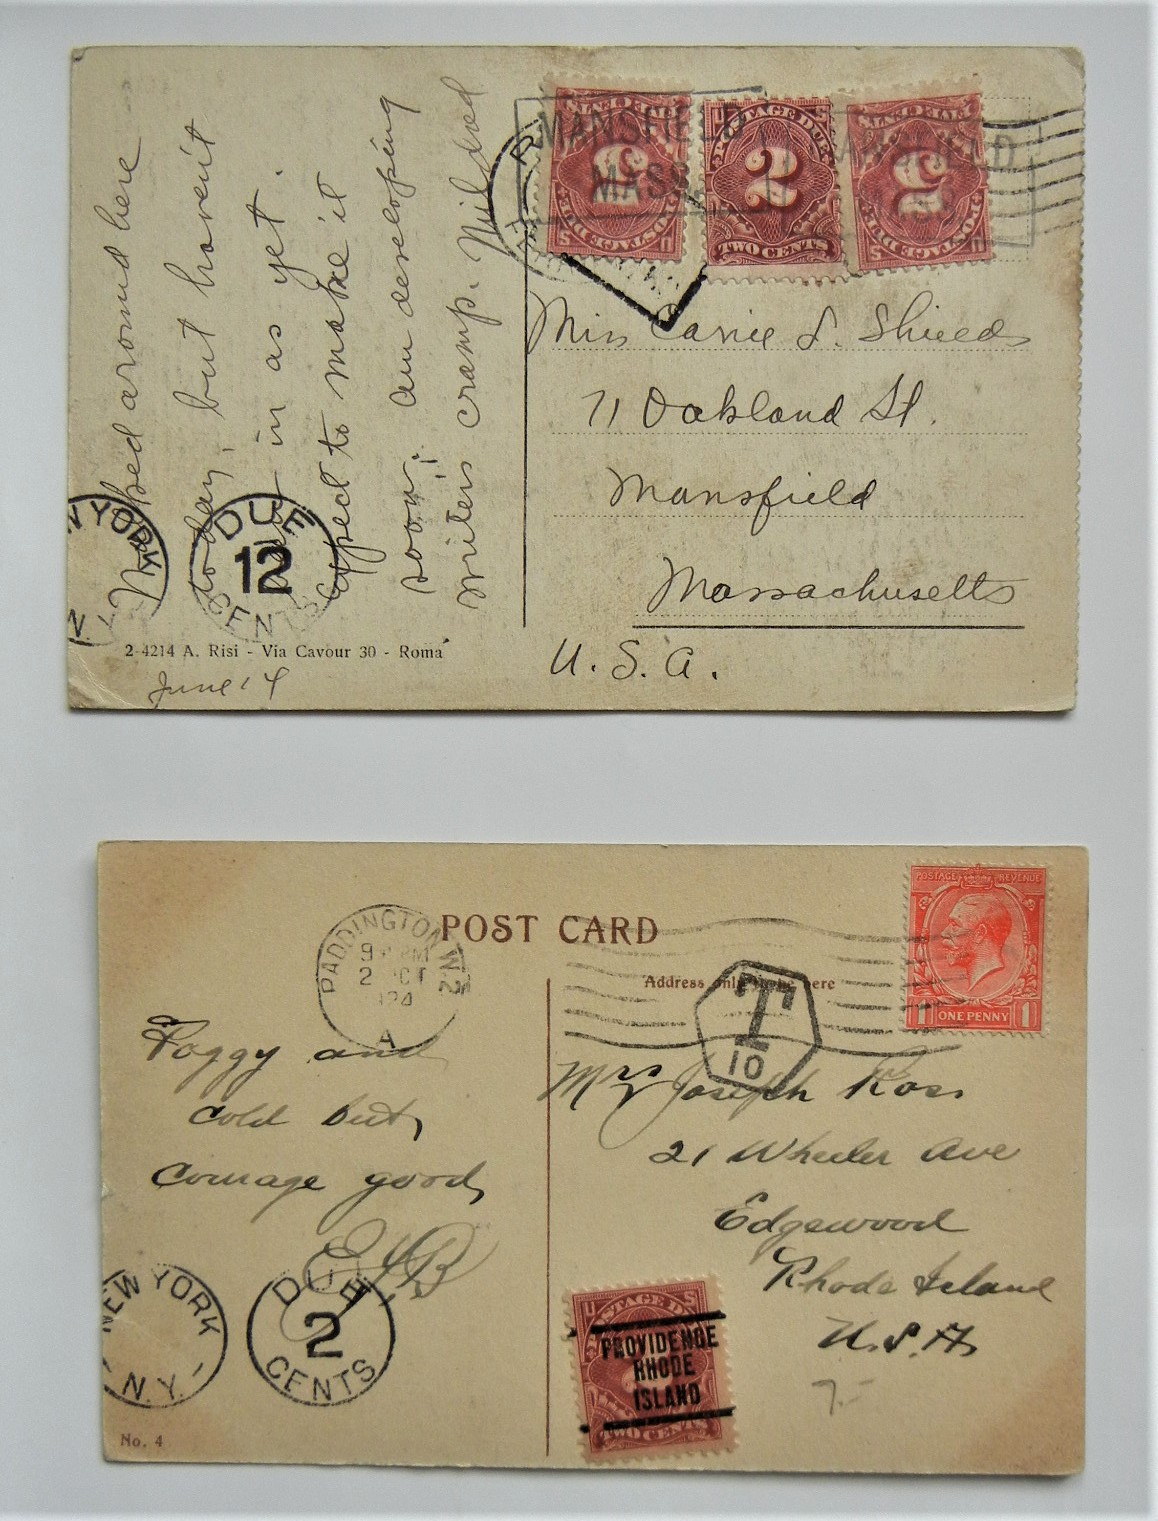 Nosed around here
today, but haven't
been in as yet.
Expect to make it
soon. Am developing
writers cramp. Mildred
NEW YORK
N.Y.
DUE
12
CENTS
2-4214 A. Risi - Via Cavour 30 - Roma
June 14
POSTAGE DUE
FIVE CENTS
5
U S
MANSFIELD
MASS.
POSTAGE DUE
2
TWO CENTS
POSTAGE DUE
FIVE CENTS
5
U S
MANSFIELD
MASS.
Miss Carrie L. Shields
71 Oakland St.
Mansfield
Massachusetts
U.S.A.
PADDINGTON. W.2
9 PM
2 OCT
1924
A
POST CARD
Address only to be here
T
10
POSTAGE REVENUE
1 ONE PENNY 1
Foggy and
cold but,
courage good,
EHB
NEW YORK
- N.Y. -
DUE
2
CENTS
No. 4
Mrs Joseph Ross
21 Wheeler Ave
Edgewood
Rhode Island
U.S.A.
7.-
U POSTAGE DUE S
PROVIDENCE
RHODE
ISLAND
TWO CENTS